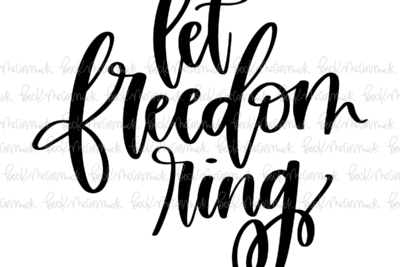 let
freedom
ring